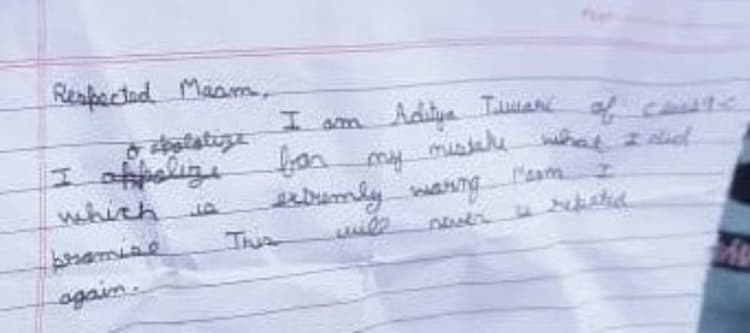 Respected Maam,
I am Aditya Tiwari of class 9-C
o apolotize
I appolize for my mistake what I did
which is extremly warng Mam I
promise This will never is repeted
again.